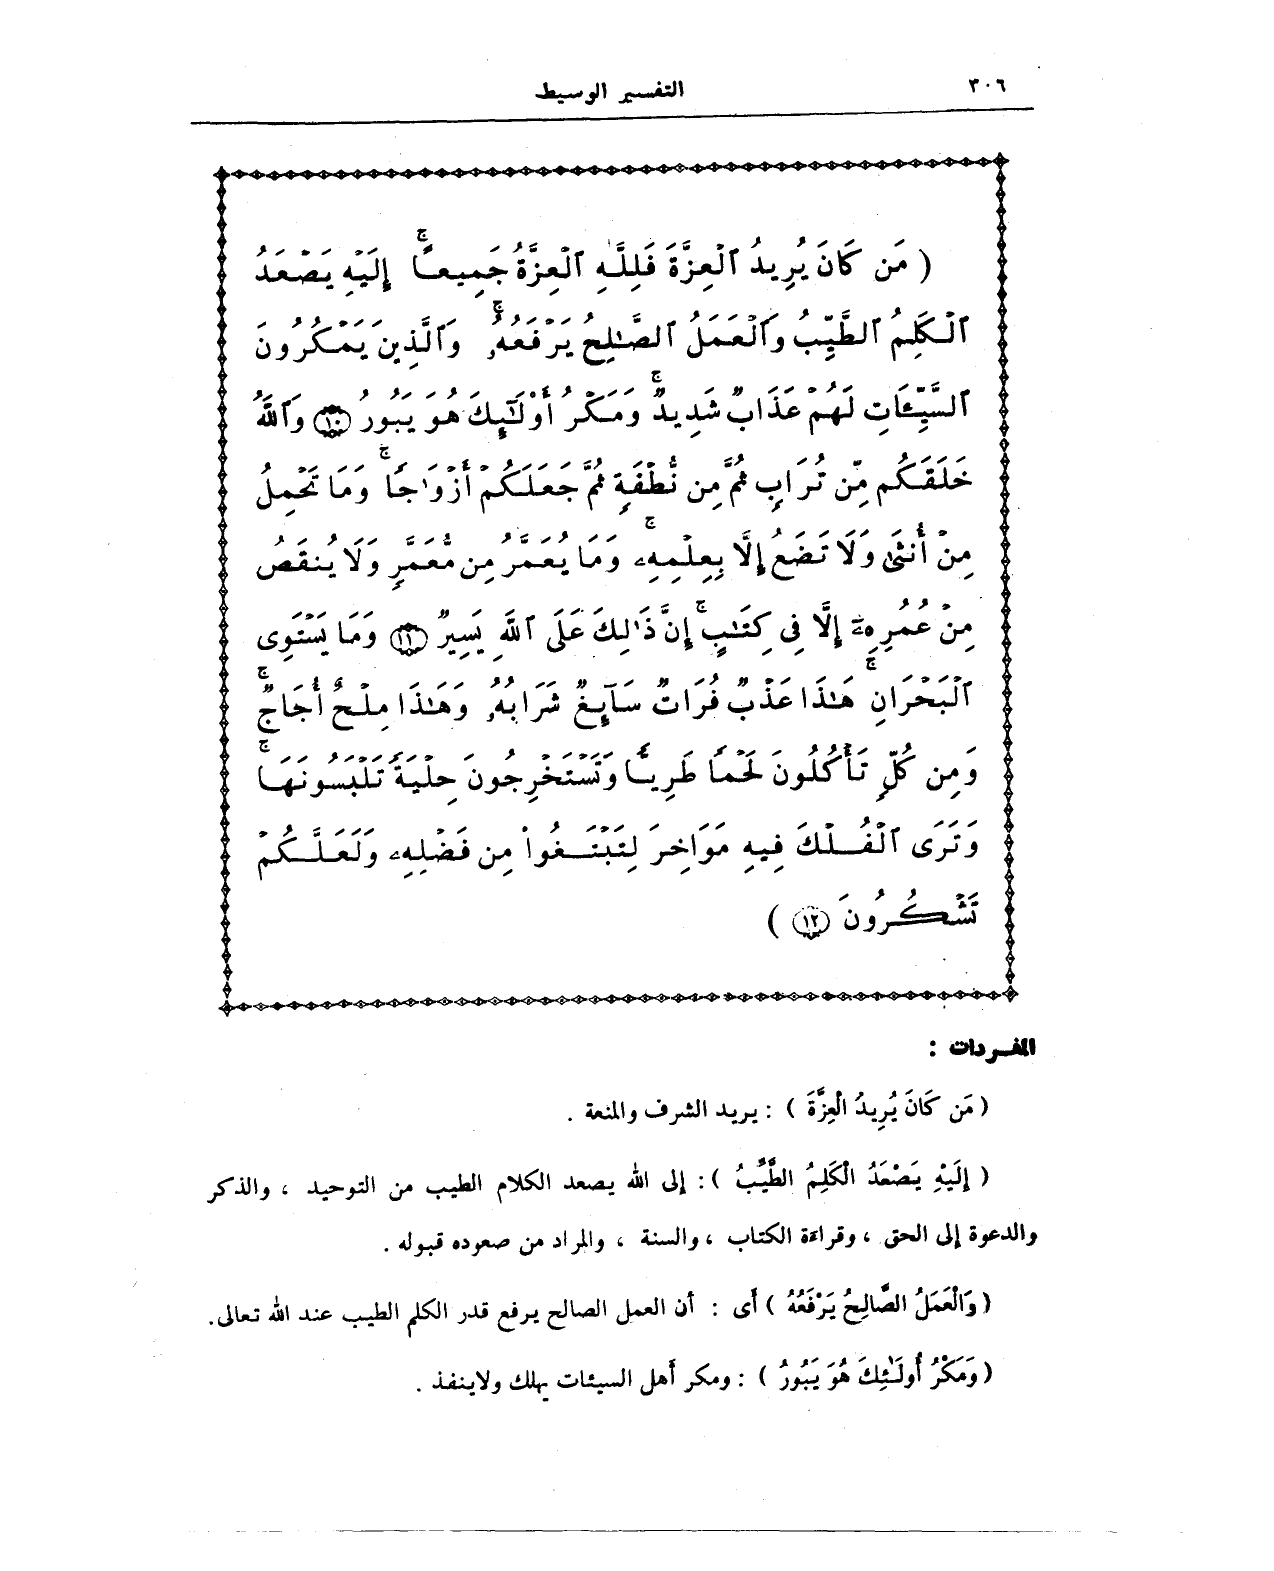 ٣٠٦
التفسير الوسيط
( مَن كَانَ يُرِيدُ ٱلْعِزَّةَ فَلِلَّهِ ٱلْعِزَّةُ جَمِيعًاۚ إِلَيْهِ يَصْعَدُ
ٱلْكَلِمُ ٱلطَّيِّبُ وَٱلْعَمَلُ ٱلصَّٰلِحُ يَرْفَعُهُۥۚ وَٱلَّذِينَ يَمْكُرُونَ
ٱلسَّيِّـَٔاتِ لَهُمْ عَذَابٌ شَدِيدٌۚ وَمَكْرُ أُوْلَٰٓئِكَ هُوَ يَبُورُ ۝١٠ وَٱللَّهُ
خَلَقَكُم مِّن تُرَابٍ ثُمَّ مِن نُّطْفَةٍ ثُمَّ جَعَلَكُمْ أَزْوَٰجًاۚ وَمَا تَحْمِلُ
مِنْ أُنثَىٰ وَلَا تَضَعُ إِلَّا بِعِلْمِهِۦۚ وَمَا يُعَمَّرُ مِن مُّعَمَّرٍ وَلَا يُنقَصُ
مِنْ عُمُرِهِۦٓ إِلَّا فِى كِتَٰبٍۚ إِنَّ ذَٰلِكَ عَلَى ٱللَّهِ يَسِيرٌ ۝١١ وَمَا يَسْتَوِى
ٱلْبَحْرَانِۚ هَٰذَا عَذْبٌ فُرَاتٌ سَآئِغٌ شَرَابُهُۥ وَهَٰذَا مِلْحٌ أُجَاجٌۚ
وَمِن كُلٍّ تَأْكُلُونَ لَحْمًا طَرِيًّا وَتَسْتَخْرِجُونَ حِلْيَةً تَلْبَسُونَهَاۚ
وَتَرَى ٱلْفُلْكَ فِيهِ مَوَاخِرَ لِتَبْتَغُواْ مِن فَضْلِهِۦ وَلَعَلَّكُمْ
تَشْكُرُونَ ۝١٢ )
المفردات :
( مَن كَانَ يُرِيدُ الْعِزَّةَ ) : يريد الشرف والمنعة .
( إِلَيْهِ يَصْعَدُ الْكَلِمُ الطَّيِّبُ ) : إلى الله يصعد الكلام الطيب من التوحيد ، والذكر
والدعوة إلى الحق ، وقراءة الكتاب ، والسنة ، والمراد من صعوده قبوله .
( وَالْعَمَلُ الصَّالِحُ يَرْفَعُهُ ) أى : أن العمل الصالح يرفع قدر الكلم الطيب عند الله تعالى.
( وَمَكْرُ أُولَٰئِكَ هُوَ يَبُورُ ) : ومكر أهل السيئات يهلك ولاينفذ .